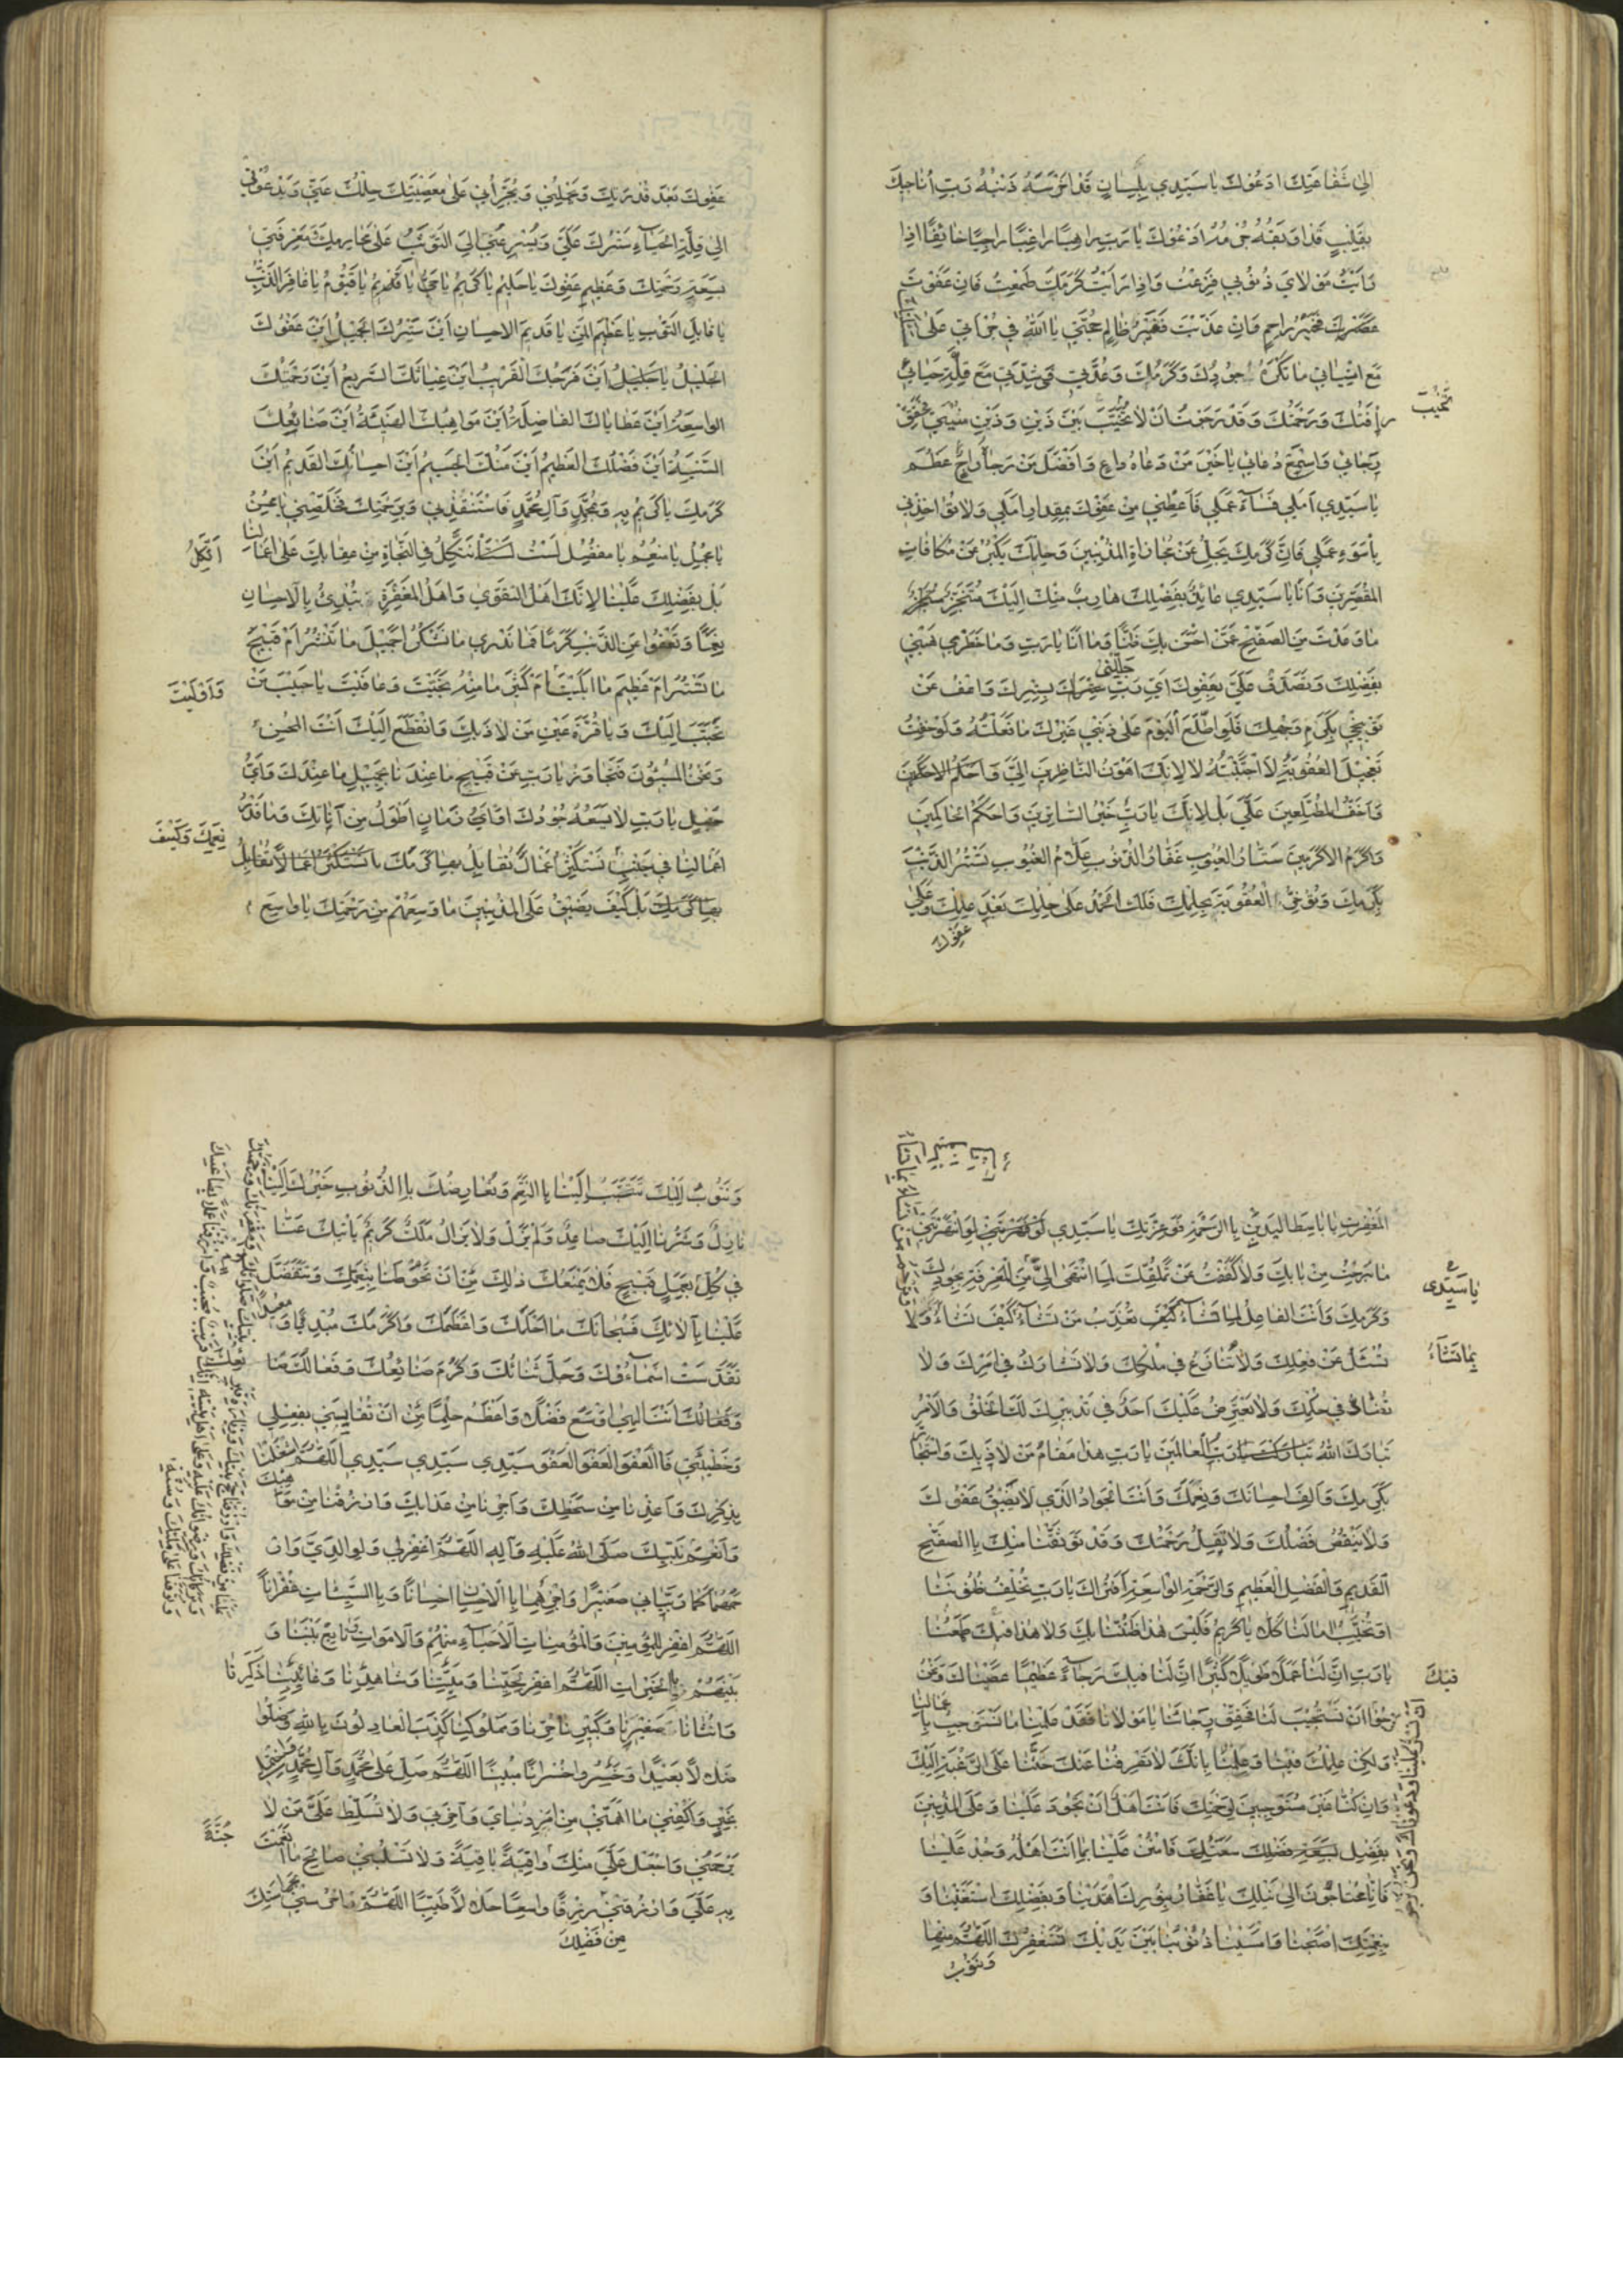 الى شفاعتك ادعوك يا سيدي بلسان قد اخرسه ذنبه رب اناجيك
بقلب قد اوبقه جرمه ادعوك يا رب راهبا راغبا راجيا خائفا اذا
رايت مولاي ذنوبي فزعت واذا رايت كرمك طمعت فان عفوت
فخير راحم وان عذبت فغير ظالم حجتي يا الله في جراتي على
مع اتياني ما تكره جودك وكرمك وعدتي في شدتي مع قلة حيائي
رافتك ورحمتك وقد رجوت ان لا تخيب بين ذين وذين
تخيب
رجائي واسمع دعائي يا خير من دعاه داع وافضل من رجاه راج عظم
يا سيدي املي فساء عملي فاعطني من عفوك بمقدار املي ولا تؤاخذني
باسوء عملي فان كرمك يجل عن مجازاة المذنبين وحلمك يكبر عن مكافات
المقصرين وانا يا سيدي عائذ بفضلك هارب منك اليك متنجز
ما وعدت من الصفح عمن احسن بك ظنا وما انا يا رب وما خطري هبني
بفضلك وتصدق علي بعفوك اي رب جللني بسترك واعف عن
توبيخي بكرم وجهك فلو اطلع اليوم على ذنبي غيرك ما فعلته ولو خفت
تعجيل العقوبة لاجتنبته لا لانك اهون الناظرين الي
واخف المطلعين علي بل لانك يا رب خير الساترين واحكم الحاكمين
واكرم الاكرمين ستار العيوب غفار الذنوب علام الغيوب تستر الذنب
بكرمك وتؤخر العقوبة بحلمك فلك الحمد على حلمك بعد علمك وعلى
عفوك
عفوك بعد قدرتك ويحملني ويجرئني على معصيتك حلمك عني ويدعوني
الى قلة الحياء سترك علي ويسرعني الى التوثب على محارمك معرفتي
بسعة رحمتك وعظيم عفوك يا حليم يا كريم يا حي يا قيوم يا غافر الذنب
يا قابل التوب يا عظيم المن يا قديم الاحسان اين سترك الجميل اين عفوك
الجليل اين فرجك القريب اين غياثك السريع اين رحمتك
الواسعة اين عطاياك الفاضلة اين مواهبك الهنيئة اين صنائعك
السنية اين فضلك العظيم اين منك الجسيم اين احسانك القديم اين
كرمك يا كريم به وبمحمد وآل محمد فاستنقذني وبرحمتك فخلصني يا محسن
يا مجمل يا منعم يا مفضل لست اتكل في النجاة من عقابك على اعمالنا
اتكل
بل بفضلك علينا لانك اهل التقوى واهل المغفرة تبدئ بالاحسان
نعما وتعفوا عن الذنب كرما فما ندري ما نشكر اجميل ما تنشر ام قبيح
ما تستر ام عظيم ما ابليت ام كثير ما منه نجيت وعافيت يا حبيب من
واوليت
تحبب اليك ويا قرة عين من لاذ بك وانقطع اليك انت المحسن
ونحن المسيئون فتجاوز يا رب عن قبيح ما عندنا بجميل ما عندك واي
جهل يا رب لا يسعه جودك او اي زمان اطول من اناتك وما قدر
اعمالنا في جنب نعمك وكيف نستكثر اعمالا نقابل
بها كرمك بل كيف يضيق على المذنبين ما وسعهم من رحمتك يا واسع
المغفرة يا باسط اليدين بالرحمة فوعزتك يا سيدي لو انتهرتني
ما برحت من بابك ولا كففت عن تملقك لما انتهى الي من المعرفة بجودك
يا سيدي
وكرمك وانت الفاعل لما تشاء تعذب من تشاء كيف تشاء ولا
بما تشاء
تسئل عن فعلك ولا تنازع في ملكك ولا تشارك في امرك ولا
تضاد في حكمك ولا يعترض عليك احد في تدبيرك لك الخلق والامر
تبارك الله رب العالمين يا رب هذا مقام من لاذ بك واستجار
بكرمك والف احسانك ونعمك وانت الجواد الذي لا يضيق عفوك
ولا ينقص فضلك ولا تقل رحمتك وقد توثقنا منك بالصفح
القديم والفضل العظيم والرحمة الواسعة افتراك يا رب تخلف ظنوننا
او تخيب امالنا كلا يا كريم فليس هذا ظننا بك ولا هذا فيك طمعنا
يا رب ان لنا املا طويلا كثيرا ان لنا فيك رجاء عظيما عصيناك ونحن
فيك
نرجوا ان تستجيب لنا فحقق رجائنا يا مولانا فقد علمنا ما نستوجب باعمالنا
ولكن علمك فينا وعلمنا بانك لا تصرفنا عنك حثنا على الرغبة اليك
وان كنا غير مستوجبين لرحمتك فانت اهل ان تجود علينا وعلى المذنبين
بفضل سعتك فامنن علينا بما انت اهله وجد علينا
فانا محتاجون الى نيلك يا غفار بنورك اهتدينا وبفضلك استغنينا و
بنعمتك اصبحنا وامسينا ذنوبنا بين يديك نستغفرك اللهم منها
ونتوب
ونتوب اليك تتحبب الينا بالنعم ونعارضك بالذنوب خيرك الينا
نازل وشرنا اليك صاعد ولم يزل ولا يزال ملك كريم ياتيك عنا
في كل بعمل قبيح فلا يمنعك ذلك من ان تحوطنا بنعمك وتتفضل
علينا بآلائك فسبحانك ما احلمك واعظمك واكرمك مبدئا و
معيدا
تقدست اسماؤك وجل ثنائك وكرم صنائعك وفعالك
انت الهي اوسع فضلا واعظم حلما من ان تقايسني بفعلي
وخطيئتي فالعفو العفو العفو سيدي سيدي سيدي اللهم اشغلنا
بذكرك واعذنا من سخطك واجرنا من عذابك وارزقنا من
وانعم نبيك صلى الله عليه وآله اللهم اغفر لي ولوالدي وار
حمهما كما ربياني صغيرا واجزهما بالاحسان احسانا وبالسيئات غفرانا
اللهم اغفر للمؤمنين والمؤمنات الاحياء منهم والاموات تابع بيننا و
بينهم بالخيرات اللهم اغفر لحينا وميتنا وشاهدنا وغائبنا ذكرنا
وانثانا صغيرنا وكبيرنا حرنا ومملوكنا كذب العادلون بالله وضلوا
ضلالا بعيدا وخسروا خسرانا مبينا اللهم صل على محمد وآل محمد واختم لي
بخير واكفني ما اهمني من امر دنياي وآخرتي ولا تسلط علي من لا
يرحمني واجعل علي منك واقية باقية ولا تسلبني صالح ما انعمت
جنة
به علي وارزقني رزقا واسعا حلالا طيبا اللهم واحرسني بحراستك
من فضلك